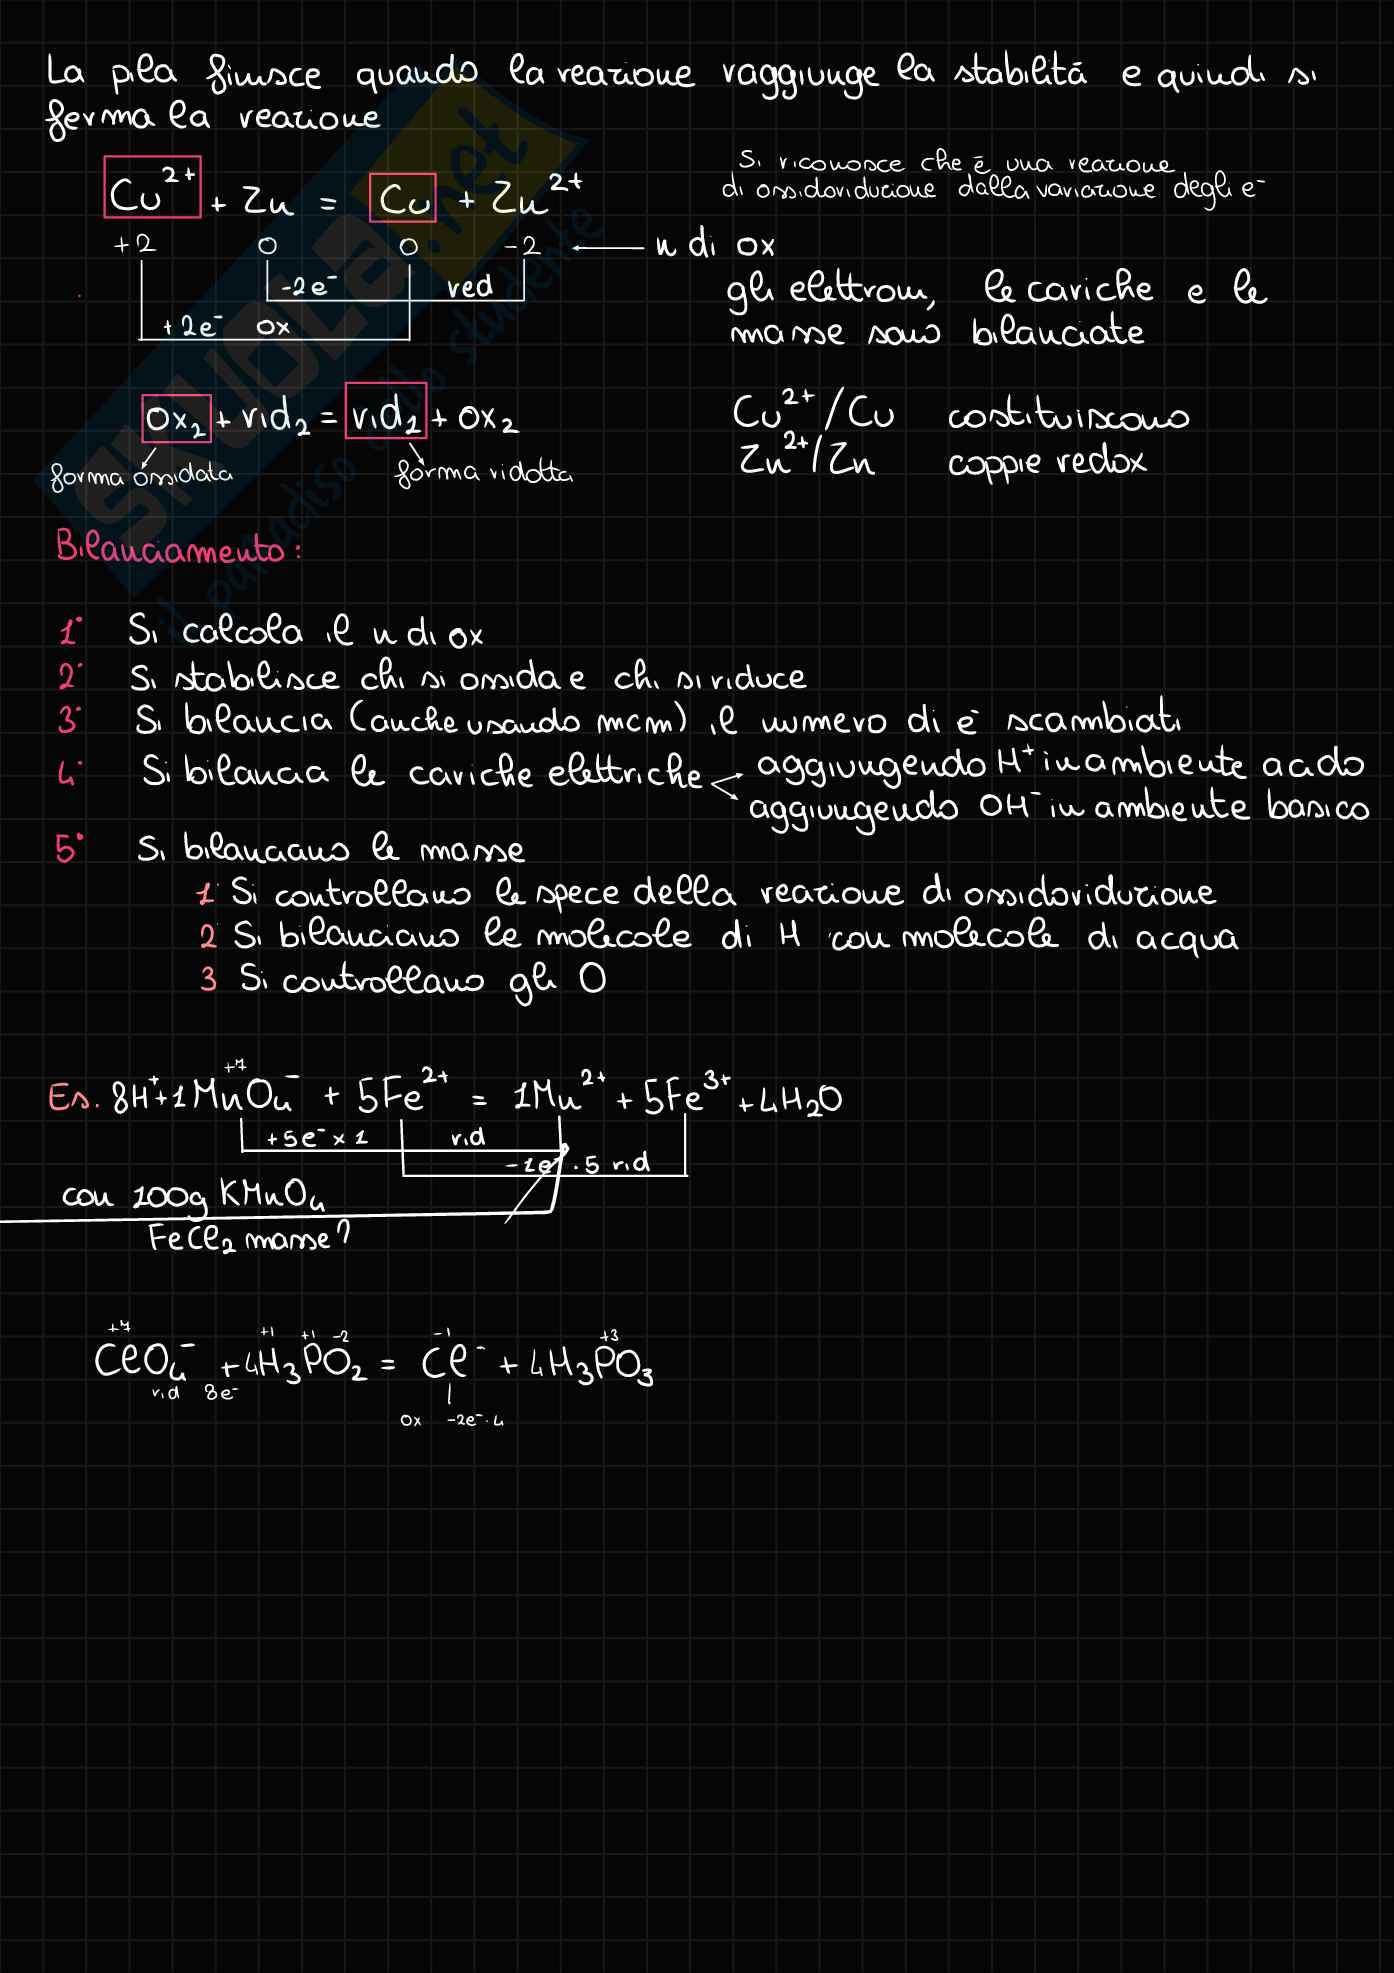 La pila finisce quando la reazione raggiunge la stabilità e quindi si
ferma la reazione
Si riconosce che è una reazione
di ossidoriduzione dalla variazione degli e⁻
Cu²⁺ + Zn = Cu + Zn²⁺
+2 0 0 -2 ← n di ox
-2e⁻ red
+2e⁻ ox
gli elettroni, le cariche e le
masse sono bilanciate
ox₂ + rid₂ = rid₁ + ox₂
forma ossidata forma ridotta
Cu²⁺/Cu costituiscono
Zn²⁺/Zn coppie redox
Bilanciamento:
1° Si calcola il n di ox
2° Si stabilisce chi si ossida e chi si riduce
3° Si bilancia (anche usando mcm) il numero di e⁻ scambiati
4° Si bilancia le cariche elettriche aggiungendo H⁺ in ambiente acido
aggiungendo OH⁻ in ambiente basico
5° Si bilanciano le masse
1 Si controllano le spece della reazione di ossidoriduzione
2 Si bilanciano le molecole di H con molecole di acqua
3 Si controllano gli O
+7
Es. 8H⁺+1MnO₄⁻ + 5Fe²⁺ = 1Mn²⁺ + 5Fe³⁺ + 4H₂O
+5e⁻ × 1 rid
-1e⁻ · 5 rid
con 100g KMnO₄
FeCl₂ masse?
+7 +1 +1 -2 -1 +3
ClO₄⁻ + 4H₃PO₂ = Cl⁻ + 4H₃PO₃
rid 8e⁻
ox -2e⁻·4
SKUOLA.net
il paradiso dello studente